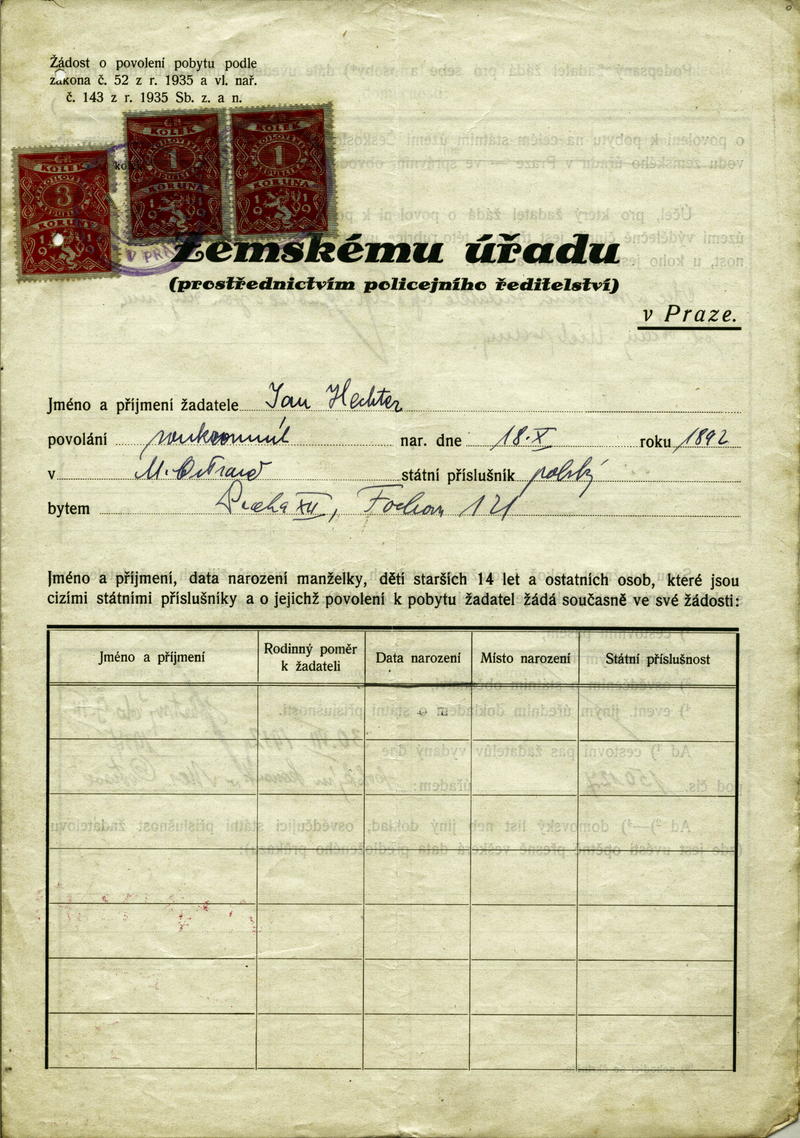 Žádost o povolení pobytu podle
zákona č. 52 z r. 1935 a vl. nař.
č. 143 z r. 1935 Sb. z. a n.
KOLEK
1
KORUNA
KOLEK
1
KORUNA
KOLEK
3
KORUNY
V PRA
Zemskému úřadu
(prostřednictvím policejního ředitelství)
v Praze.
Jméno a příjmení žadatele Jan Hechter
povolání soukromník nar. dne 18.X roku 1892
v M. Ostravě státní příslušník polský
bytem Praha XII, Fochova 121
Jméno a příjmení, data narození manželky, dětí starších 14 let a ostatních osob, které jsou
cizími státními příslušníky a o jejichž povolení k pobytu žadatel žádá současně ve své žádosti:
Jméno a příjmení
Rodinný poměr
k žadateli
Data narození
Místo narození
Státní příslušnost